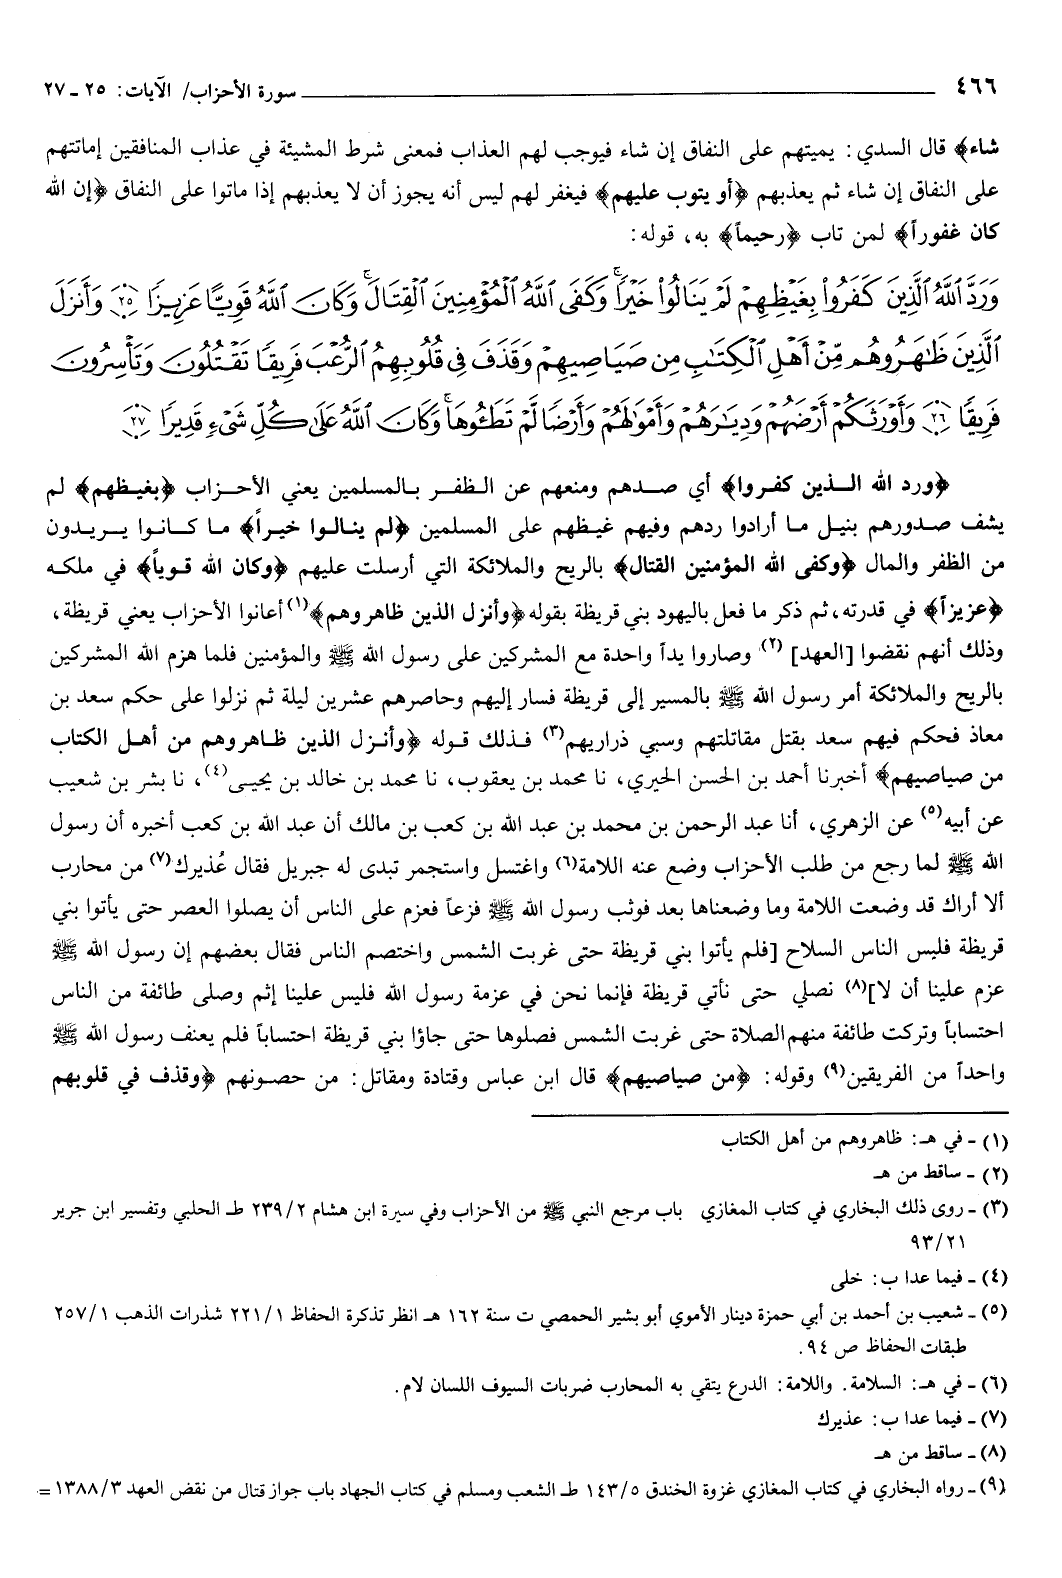 ٤٦٦ سورة الأحزاب/ الآيات: ٢٥ ـ ٢٧
شاء﴾ قال السدي: يميتهم على النفاق إن شاء فيوجب لهم العذاب فمعنى شرط المشيئة في عذاب المنافقين إماتتهم
على النفاق إن شاء ثم يعذبهم ﴿أو يتوب عليهم﴾ فيغفر لهم ليس أنه يجوز أن لا يعذبهم إذا ماتوا على النفاق ﴿إن الله
كان غفوراً﴾ لمن تاب ﴿رحيماً﴾ به، قوله:
وَرَدَّ ٱللَّهُ ٱلَّذِينَ كَفَرُوا۟ بِغَيْظِهِمْ لَمْ يَنَالُوا۟ خَيْرًا ۚ وَكَفَى ٱللَّهُ ٱلْمُؤْمِنِينَ ٱلْقِتَالَ ۚ وَكَانَ ٱللَّهُ قَوِيًّا عَزِيزًا ﴿٢٥﴾ وَأَنزَلَ
ٱلَّذِينَ ظَٰهَرُوهُم مِّنْ أَهْلِ ٱلْكِتَٰبِ مِن صَيَاصِيهِمْ وَقَذَفَ فِى قُلُوبِهِمُ ٱلرُّعْبَ فَرِيقًا تَقْتُلُونَ وَتَأْسِرُونَ
فَرِيقًا ﴿٢٦﴾ وَأَوْرَثَكُمْ أَرْضَهُمْ وَدِيَٰرَهُمْ وَأَمْوَٰلَهُمْ وَأَرْضًا لَّمْ تَطَـُٔوهَا ۚ وَكَانَ ٱللَّهُ عَلَىٰ كُلِّ شَىْءٍ قَدِيرًا ﴿٢٧﴾
﴿ورد الله الذين كفروا﴾ أي صدهم ومنعهم عن الظفر بالمسلمين يعني الأحزاب ﴿بغيظهم﴾ لم
يشف صدورهم بنيل ما أرادوا ردهم وفيهم غيظهم على المسلمين ﴿لم ينالوا خيراً﴾ ما كانوا يريدون
من الظفر والمال ﴿وكفى الله المؤمنين القتال﴾ بالريح والملائكة التي أرسلت عليهم ﴿وكان الله قوياً﴾ في ملكه
﴿عزيزاً﴾ في قدرته، ثم ذكر ما فعل باليهود بني قريظة بقوله ﴿وأنزل الذين ظاهروهم﴾(١) أعانوا الأحزاب يعني قريظة،
وذلك أنهم نقضوا [العهد] (٢) وصاروا يداً واحدة مع المشركين على رسول الله ﷺ والمؤمنين فلما هزم الله المشركين
بالريح والملائكة أمر رسول الله ﷺ بالمسير إلى قريظة فسار إليهم وحاصرهم عشرين ليلة ثم نزلوا على حكم سعد بن
معاذ فحكم فيهم سعد بقتل مقاتلتهم وسبي ذراريهم(٣) فذلك قوله ﴿وأنزل الذين ظاهروهم من أهل الكتاب
من صياصيهم﴾ أخبرنا أحمد بن الحسن الحيري، نا محمد بن يعقوب، نا محمد بن خالد بن يحيى(٤)، نا بشر بن شعيب
عن أبيه(٥) عن الزهري، أنا عبد الرحمن بن محمد بن عبد الله بن كعب بن مالك أن عبد الله بن كعب أخبره أن رسول
الله ﷺ لما رجع من طلب الأحزاب وضع عنه اللامة(٦) واغتسل واستجمر تبدى له جبريل فقال عُذيرك(٧) من محارب
ألا أراك قد وضعت اللامة وما وضعناها بعد فوثب رسول الله ﷺ فزعاً فعزم على الناس أن يصلوا العصر حتى يأتوا بني
قريظة فلبس الناس السلاح [فلم يأتوا بني قريظة حتى غربت الشمس واختصم الناس فقال بعضهم إن رسول الله ﷺ
عزم علينا أن لا](٨) نصلي حتى نأتي قريظة فإنما نحن في عزمة رسول الله فليس علينا إثم وصلى طائفة من الناس
احتساباً وتركت طائفة منهم الصلاة حتى غربت الشمس فصلوها حتى جاؤا بني قريظة احتساباً فلم يعنف رسول الله ﷺ
واحداً من الفريقين(٩) وقوله: ﴿من صياصيهم﴾ قال ابن عباس وقتادة ومقاتل: من حصونهم ﴿وقذف في قلوبهم
(١) ـ في هـ: ظاهروهم من أهل الكتاب
(٢) ـ ساقط من هـ
(٣) ـ روى ذلك البخاري في كتاب المغازي باب مرجع النبي ﷺ من الأحزاب وفي سيرة ابن هشام ٢/ ٢٣٩ طـ الحلبي وتفسير ابن جرير
٢١/ ٩٣
(٤) ـ فيما عدا ب: خلى
(٥) ـ شعيب بن أحمد بن أبي حمزة دينار الأموي أبو بشير الحمصي ت سنة ١٦٢ هـ انظر تذكرة الحفاظ ١/ ٢٢١ شذرات الذهب ١/ ٢٥٧
طبقات الحفاظ ص ٩٤.
(٦) ـ في هـ: السلامة. واللامة: الدرع يتقي به المحارب ضربات السيوف اللسان لام.
(٧) ـ فيما عدا ب: عذيرك
(٨) ـ ساقط من هـ
(٩) ـ رواه البخاري في كتاب المغازي غزوة الخندق ٥/ ١٤٣ طـ الشعب ومسلم في كتاب الجهاد باب جواز قتال من نقض العهد ٣/ ١٣٨٨ =